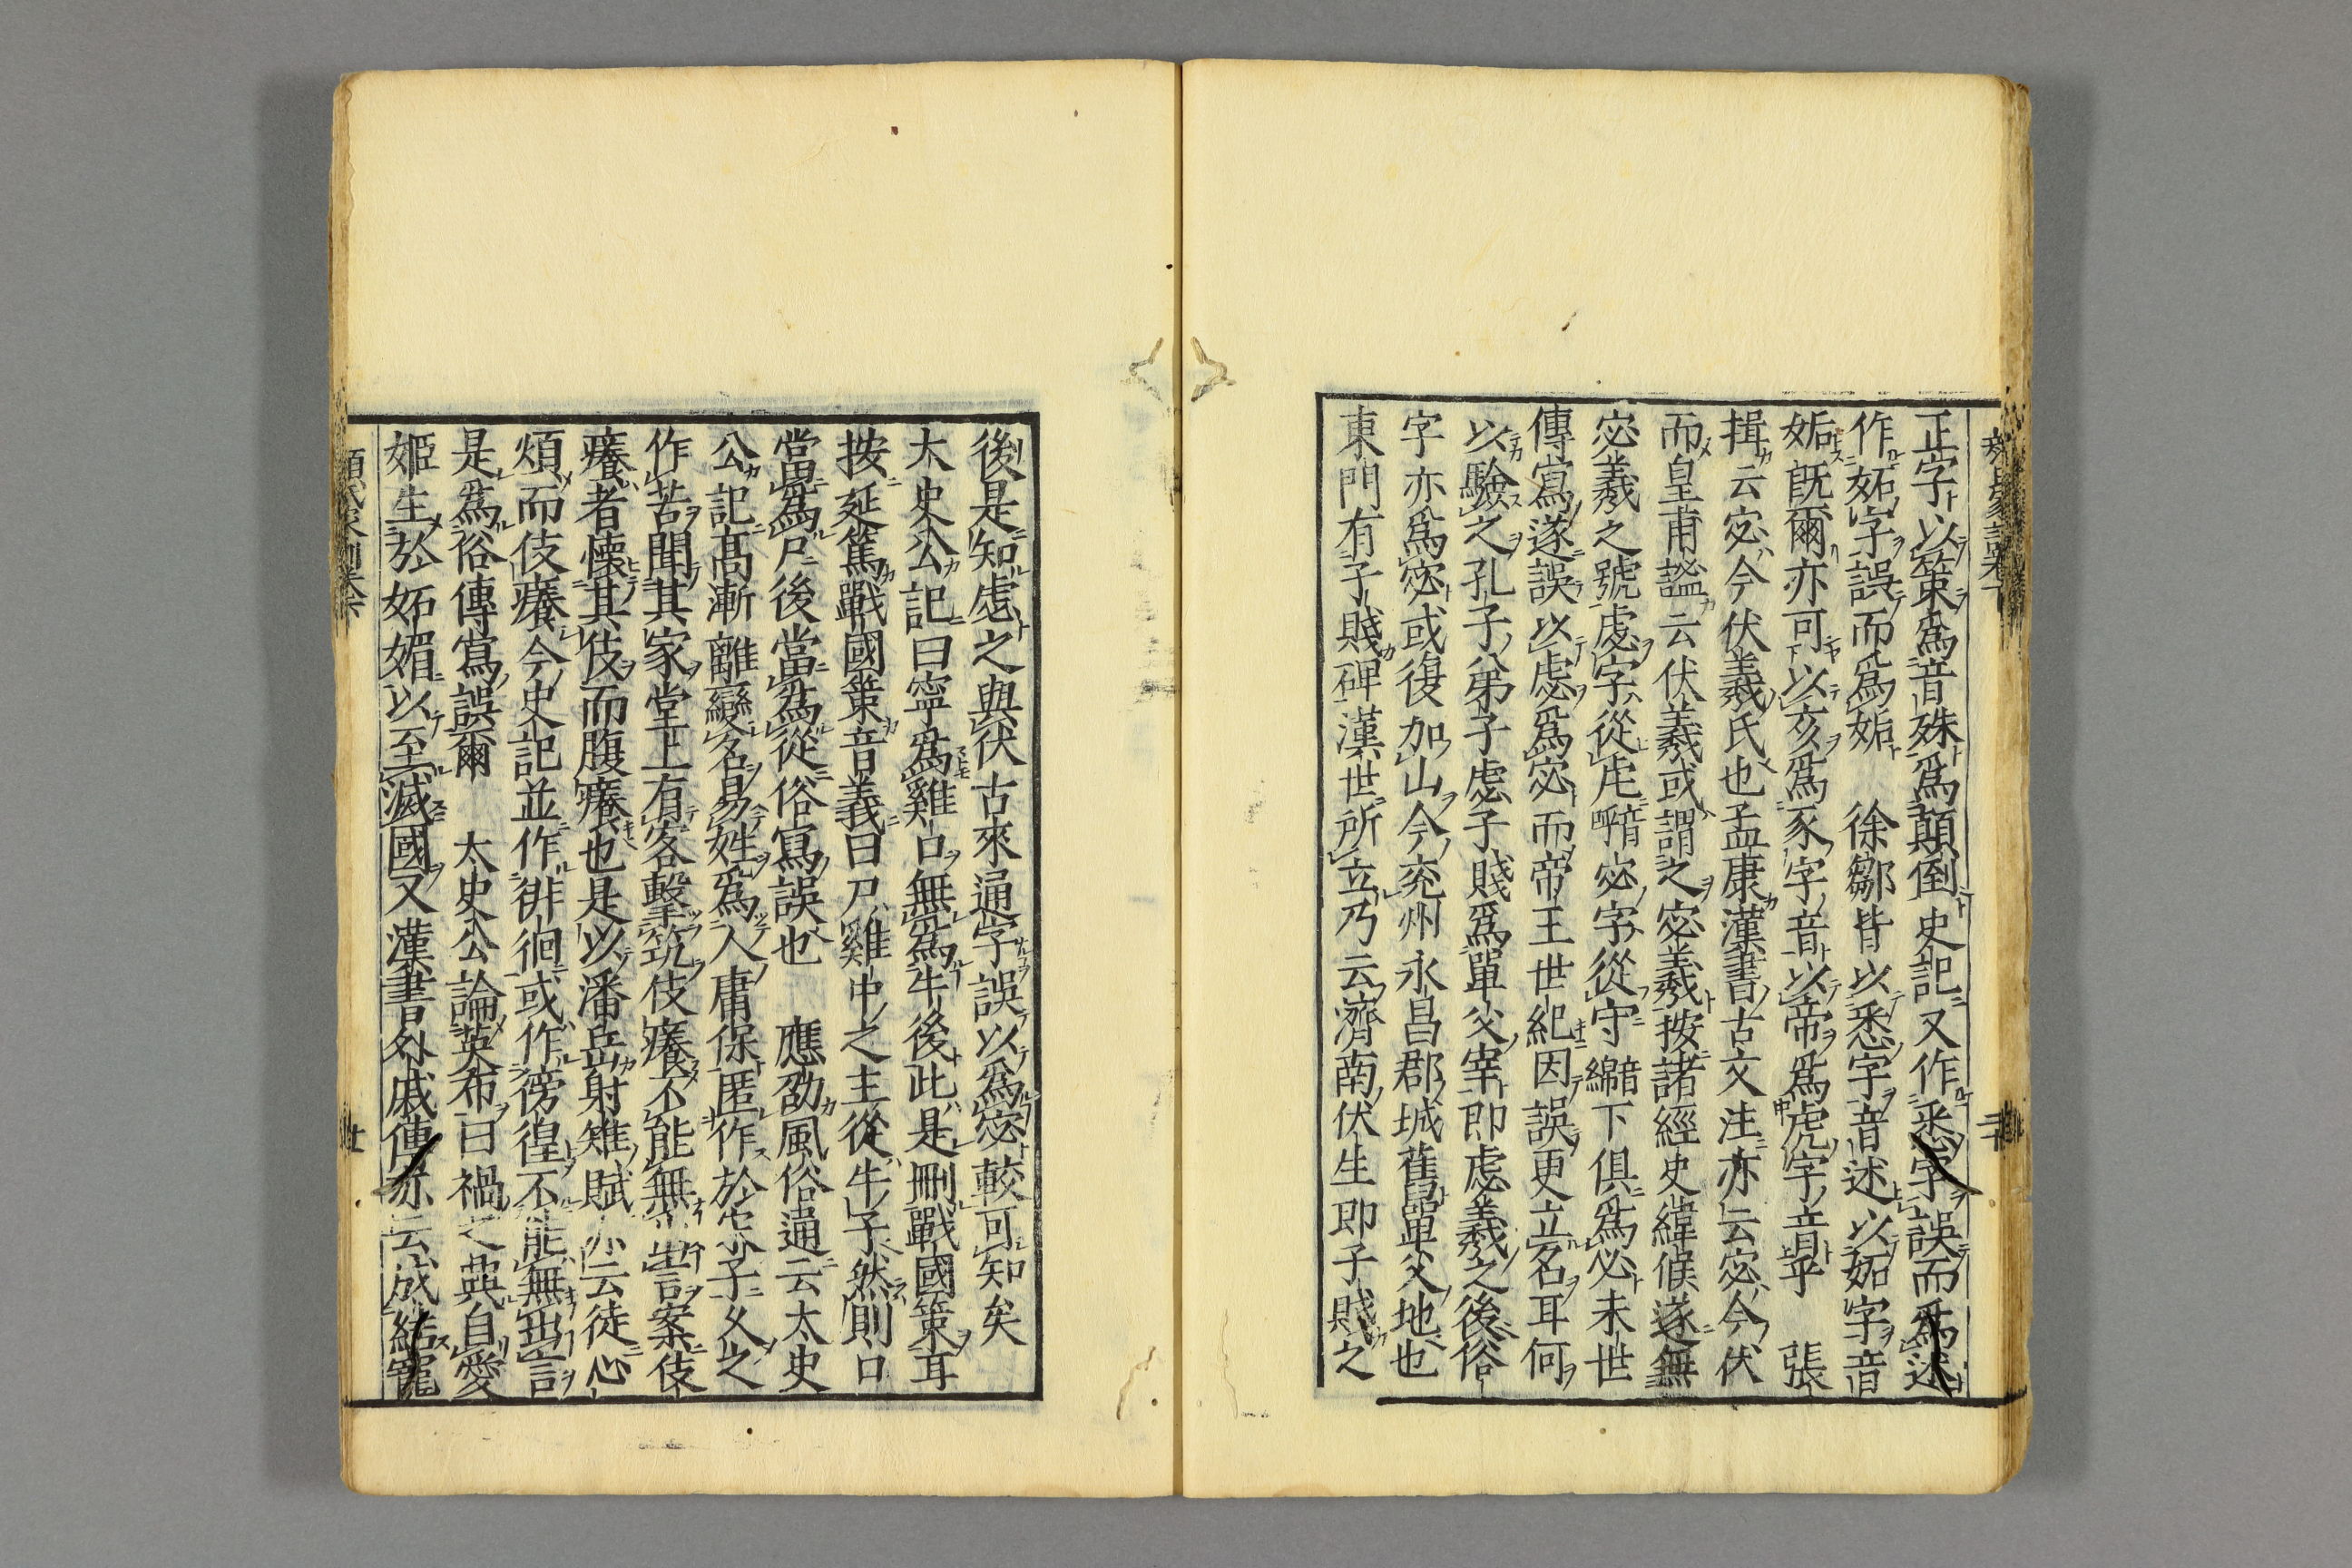 正字以策爲音殊爲顛倒史記又作悉字誤而爲述
作妬字誤而爲姤　徐鄒皆以悉字音述以妬字音
姤旣爾亦可以亥爲豕字音以帝爲虎字音乎　張
揖云宓今伏羲氏也孟康漢書古文注亦云宓今伏
而皇甫謐云伏羲或謂之宓羲按諸經史緯候遂無
宓羲之號虙字從虍音呼宓字從宀音綿下俱爲必末世
傳寫遂誤以虙爲宓而帝王世紀因誤更立名耳何
以驗之孔子弟子虙子賤爲單父宰即虙羲之後俗
字亦爲宓或復加山今兖州永昌郡城舊單父地也
東門有子賤碑漢世所立乃云濟南伏生即子賤之
後是知虙之與伏古來通字誤以爲宓較可知矣
太史公記曰寧爲雞口無爲牛後此是刪戰國策耳
按延篤戰國策音義曰尸雞中之主從牛子然則口
當爲尸後當爲從俗寫誤也　應劭風俗通云太史
公記高漸離變名易姓爲人庸保匿作於宋子久之
作苦聞其家堂上有客擊筑伎癢不能無出言案伎
癢者懷其伎而腹癢也是以潘岳射雉賦亦云徒心
煩而伎癢今史記並作徘徊或作徬徨不能無出言
是爲俗傳寫誤爾　太史公論英布曰禍之興自愛
姬生於妬媚以至滅國又漢書外戚傳亦云成結寵
顏氏家訓卷下